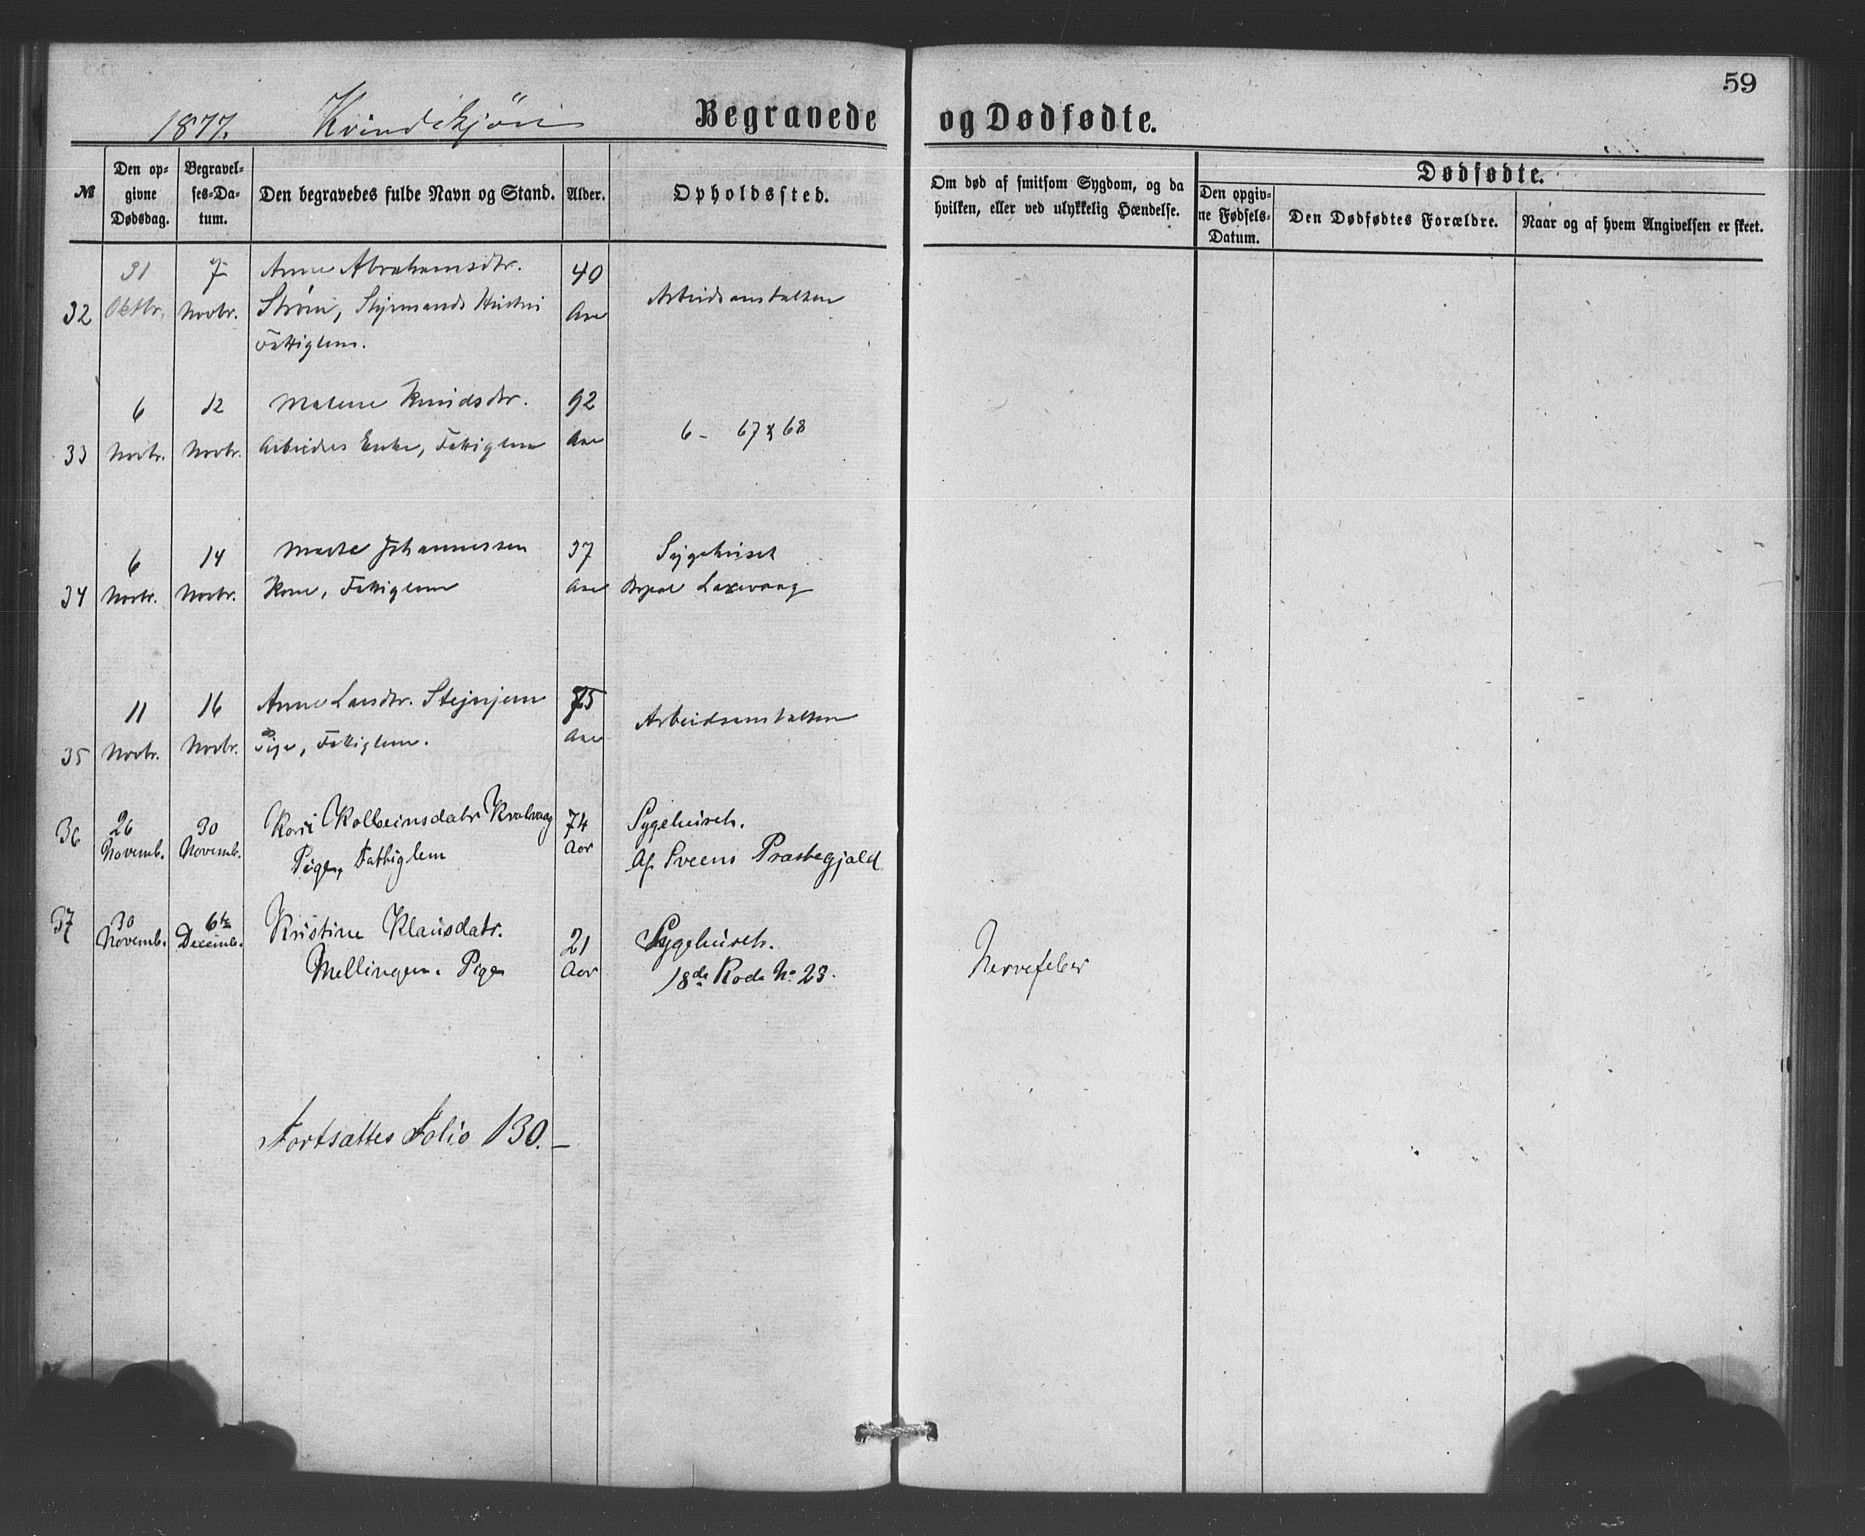 59
1877. Kvindekjøn Begravede og Dødfødte.
№
Den opgivne Dødsdag.
Begravelses-Datum.
Den begravedes fulde Navn og Stand.
Alder.
Opholdssted.
Om død af smitsom Sygdom, og da hvilken, eller ved ulykkelig Hændelse.
Dødfødte.
Den opgivne Fødsels-Datum.
Den Dødfødtes Forældre.
Naar og af hvem Angivelsen er skeet.
31 7 Anne Abrahamsdtr. 40
32 Oktbr. Novbr. Strøm, Styrmands Hustru Aar Arbeidsanstalten
Fattiglem.
6 12 Malene Knudsdtr. 92
33 Novbr. Novbr. Arbeiders Enke, Fattiglem Aar 6 - 67 & 68
6 14 Marte Johannessen 37 Sygehuset
34 Novbr. Novbr. Kone, Fattiglem Aar Laxevaag
11 16 Anne Larsdtr. 75
35 Novbr. Novbr. Pige, Fattiglem. Aar Arbeidsanstalten
36 26 30 Kari Kolbeinsdatr Kvalvaag 74 Sygehuset.
Novemb. Novemb. Pige, Fattiglem Aar Af Sveens Præstegjæld
37 30 6te Kristine Klausdatr. 21 Sygehuset.
Novemb. Decemb. Mellingen. Pige Aar 18de Rode No 23. Nervefeber
Fortsættes Folio 130.—